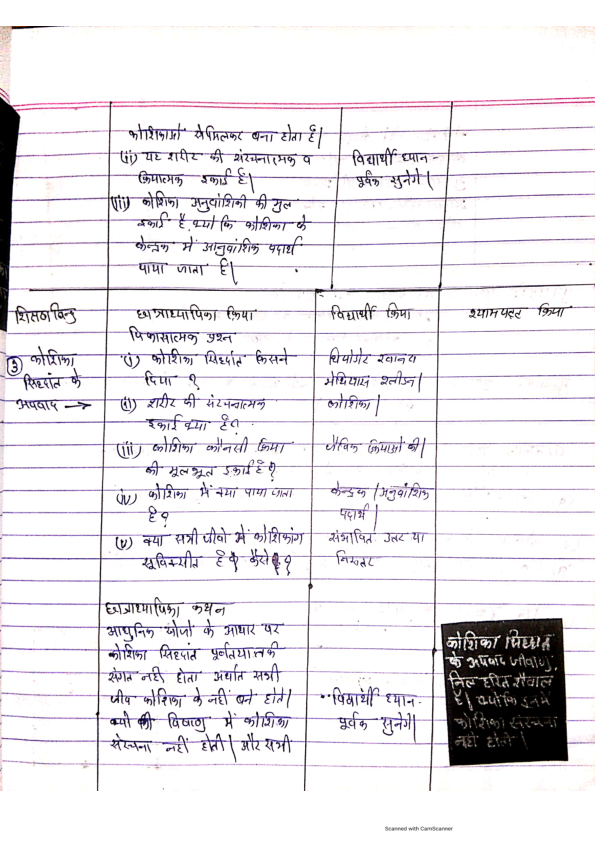 कोशिकाओं से मिलकर बना होता है|
(ii) यह शरीर की संरचनात्मक व
क्रियात्मक इकाई है|
(iii) कोशिका अनुवांशिकी की मुल
इकाई है क्यो कि कोशिका के
केन्द्रक में आनुवांशिक पदार्थ
पाया जाता है|
विद्यार्थी ध्यान-
पूर्वक सुनेगे|
शिक्षण बिन्दु
छात्राध्यापिका क्रिया
विद्यार्थी क्रिया
श्यामपट्ट क्रिया
③ कोशिका
सिद्धांत के
अपवाद →
विकासात्मक प्रश्न
(i) कोशिका सिद्धांत किसने
दिया ?
थियोडोर श्वान व
मेथियास श्लीडन|
(ii) शरीर की संरचनात्मक
इकाई क्या है?
कोशिका|
(iii) कोशिका कौनसी क्रिया
की मूलभूत इकाई है?
जैविक क्रियाओं की|
(iv) कोशिका में क्या पाया जाता
है?
केन्द्रक/अनुवांशिक
पदार्थ|
(v) क्या सभी जीवो में कोशिकांग
सुविकसीत है? कैसे?
संभावित उत्तर या
निरुत्तर
छात्राध्यापिका कथन
आधुनिक खोजों के आधार पर
कोशिका सिद्धांत पूर्णतया तर्क
संगत नहीं होता अर्थात सभी
जीव कोशिका के नहीं बने होते|
क्यो की विषाणु में कोशिका
संरचना नहीं होती| और सभी
विद्यार्थी ध्यान-
पूर्वक सुनेगें|
कोशिका सिद्धांत
के अपवाद जीवाणु,
निल हरित शैवाल
है| क्योंकि इनमें
कोशिका संरचना
नहीं होती|
Scanned with CamScanner